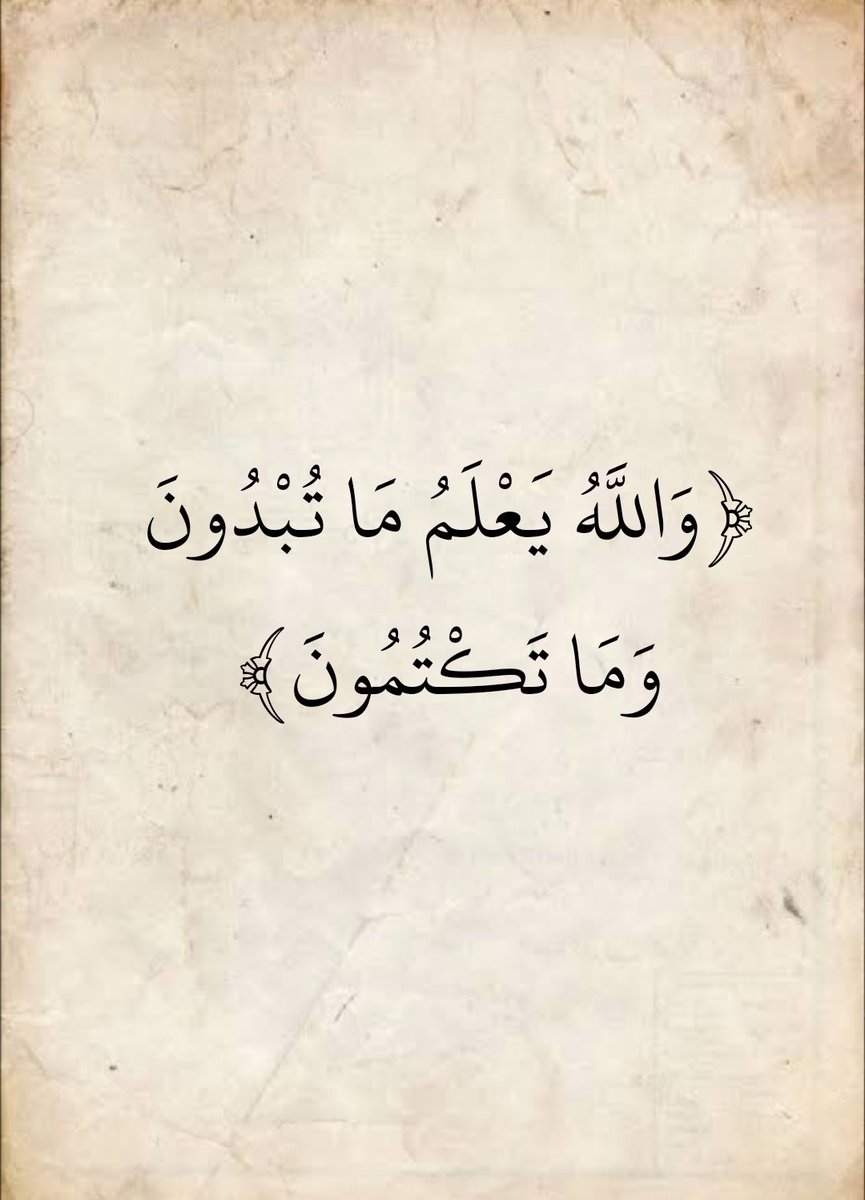 ﴿وَاللَّهُ يَعْلَمُ مَا تُبْدُونَ
وَمَا تَكْتُمُونَ﴾